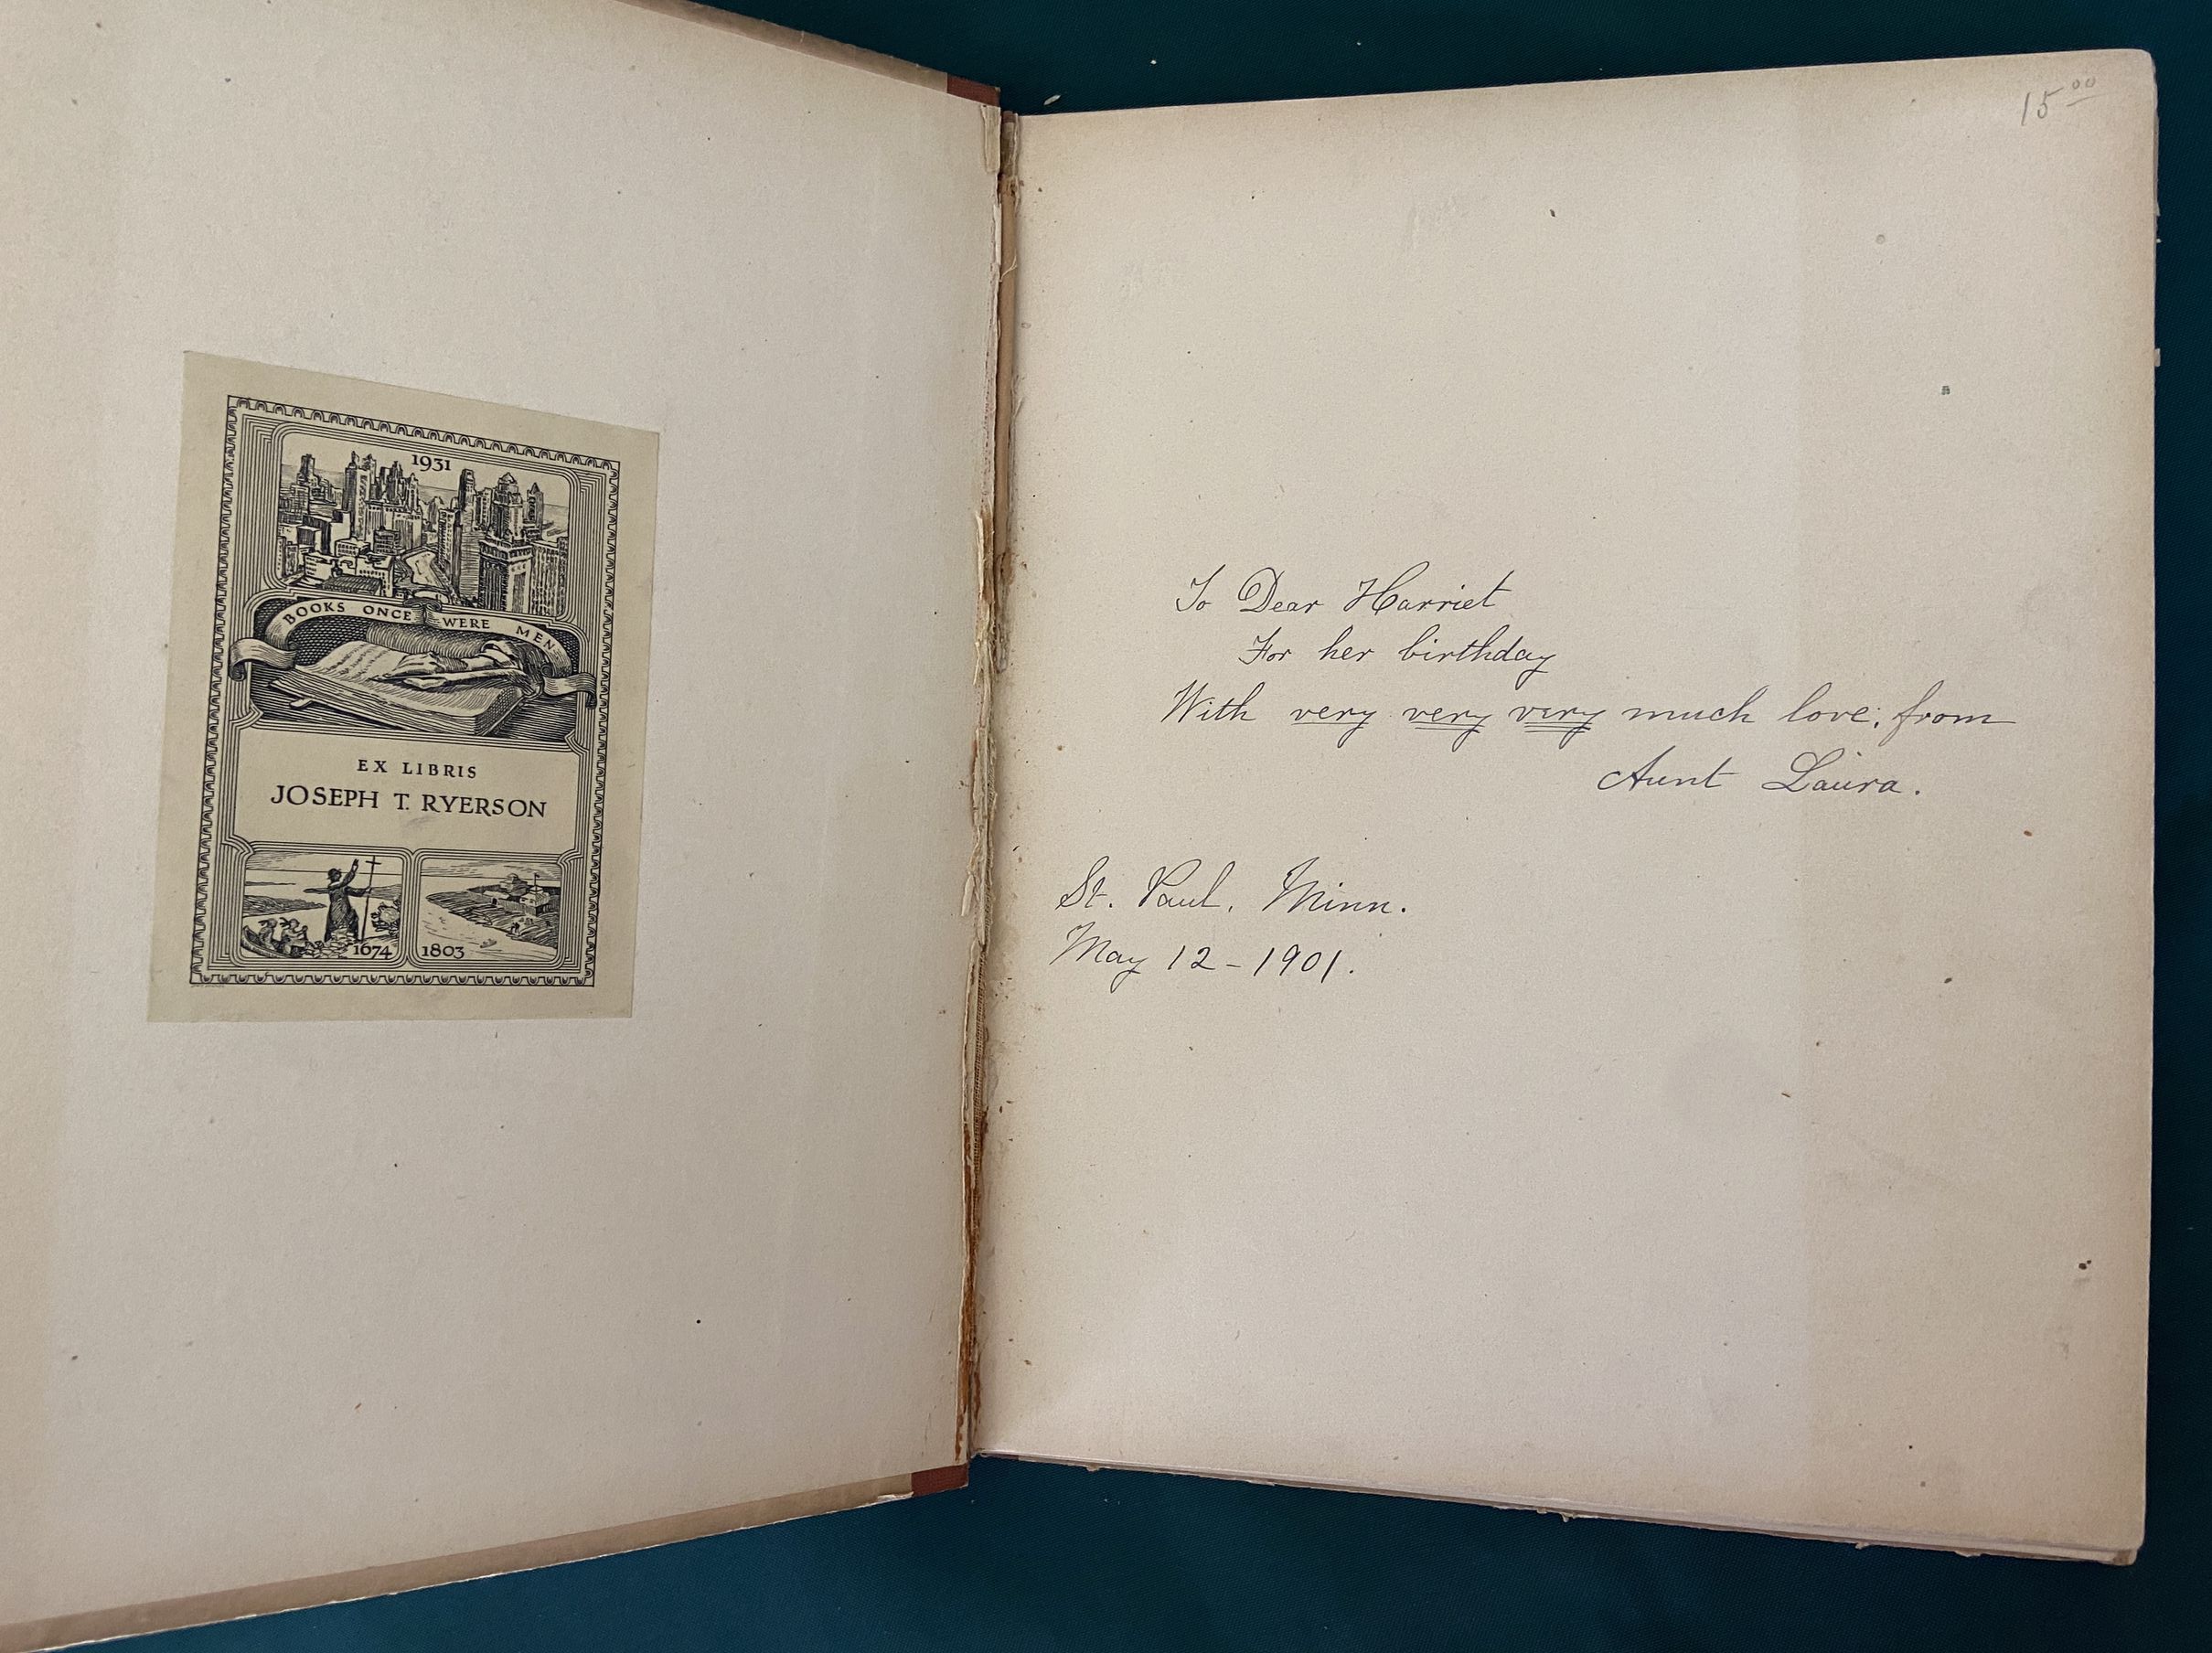 1931
BOOKS ONCE WERE MEN
EX LIBRIS
JOSEPH T. RYERSON
1674
1803
15 00
To Dear Harriet
For her birthday
With very very very much love, from
Aunt Laura.
St. Paul, Minn.
May 12 - 1901.